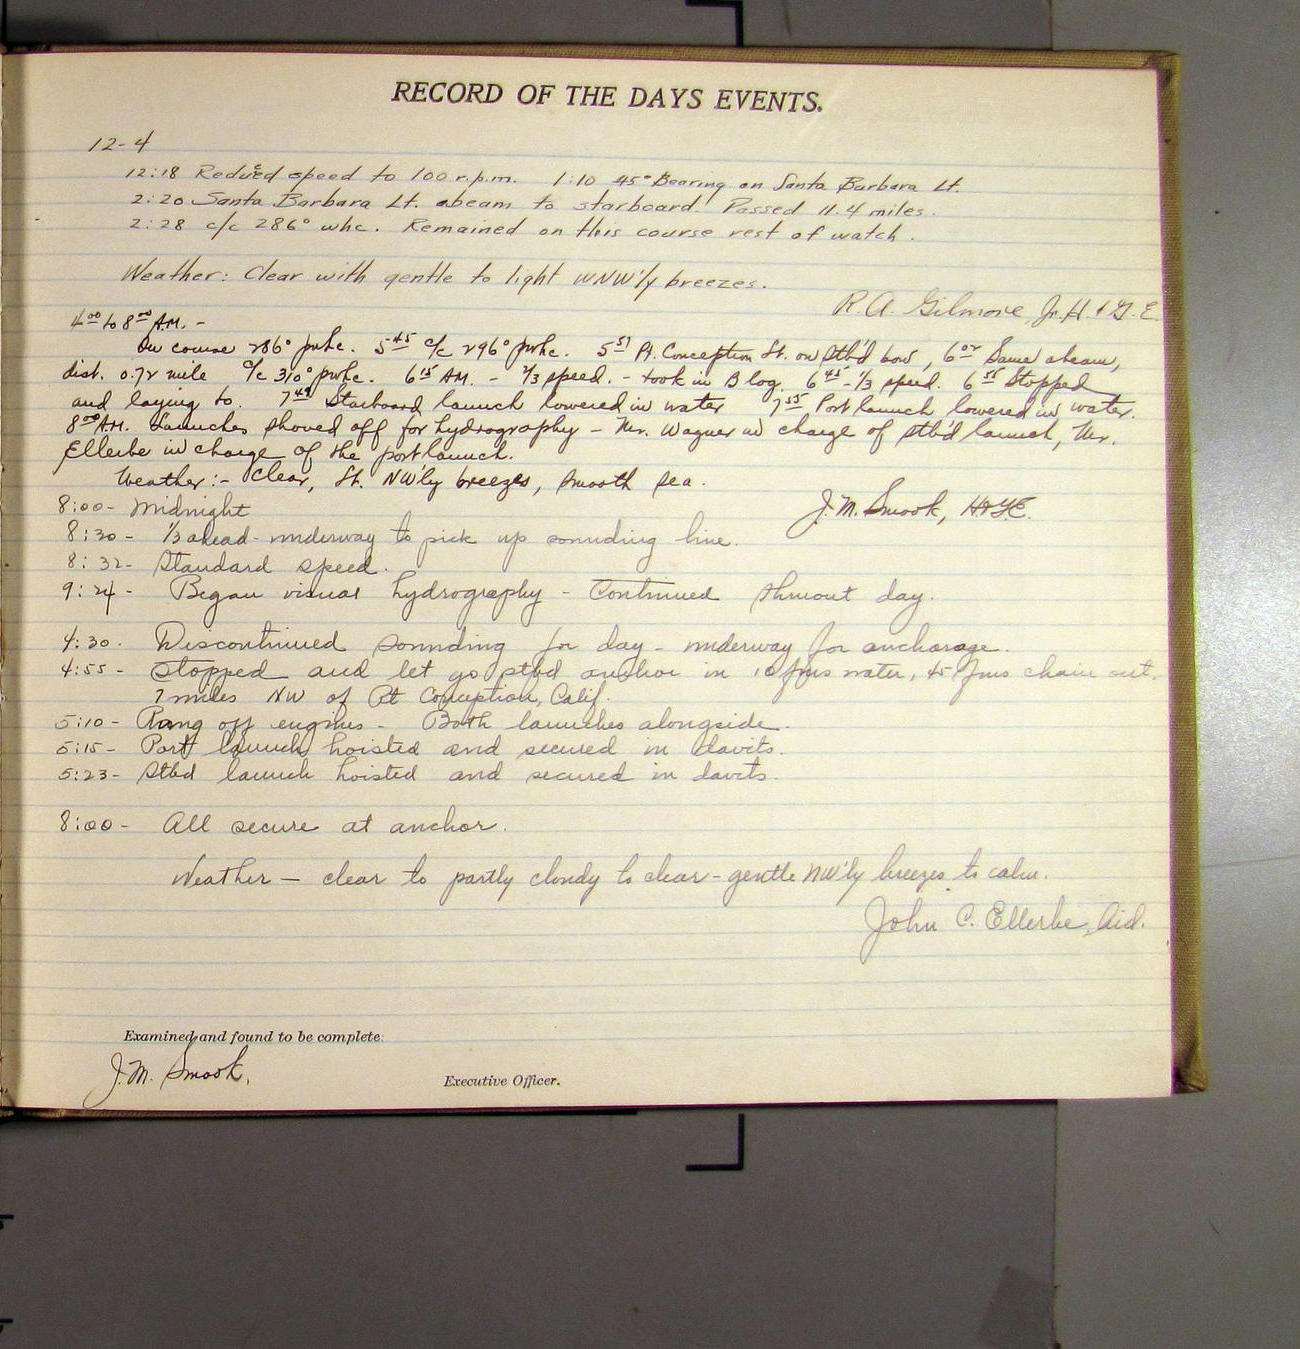 RECORD OF THE DAYS EVENTS.
12-4
12:18 Reduced speed to 100 r.p.m. 1:10 45° Bearing on Santa Barbara Lt.
2:20 Santa Barbara Lt. abeam to starboard. Passed 11.4 miles.
2:28 c/c 286° whc. Remained on this course rest of watch.
Weather: Clear with gentle to light WNW'ly breezes.
R.A. Gilmore, Jr. H. & G. E.
4⁰⁰ to 8⁰⁰ A.M. -
On course 286° pwhc. 5⁴⁵ c/c 296° pwhc. 5⁵¹ Pt. Conception Lt. on Stb'd bow, 6⁰² Same abeam,
dist. 0.72 mile c/c 310° pwhc. 6¹⁵ AM. - ⅔ speed. - took in B log. 6⁴⁵ - ⅓ speed. 6⁵⁵ Stopped
and laying to. 7⁴⁹ Starboard launch lowered in water 7⁵⁵ Port launch lowered in water.
8⁰⁰ A.M. Launches shoved off for hydrography - Mr. Wagner in charge of stb'd launch, Mr.
Ellerbe in charge of the port launch.
Weather:- Clear, Lt. NW'ly breezes, smooth sea.
J.M. Smook, H&GE.
8:00- Midnight
8:30- ⅓ ahead - underway to pick up sounding line.
8:32- Standard speed.
9:24- Began visual hydrography - Continued thruout day.
4:30. Discontinued sounding for day - underway for anchorage.
4:55- Stopped and let go stbd anchor in 10 fms water, 45 fms chain out.
7 miles NW of Pt Conception, Calif.
5:10- Rang off engines - Both launches alongside.
5:15- Port launch hoisted and secured in davits.
5:23- Stbd launch hoisted and secured in davits.
8:00- All secure at anchor.
Weather - clear to partly cloudy to clear - gentle NW'ly breezes to calm.
John C. Ellerbe, Aid.
Examined and found to be complete:
J.M. Smook,
Executive Officer.